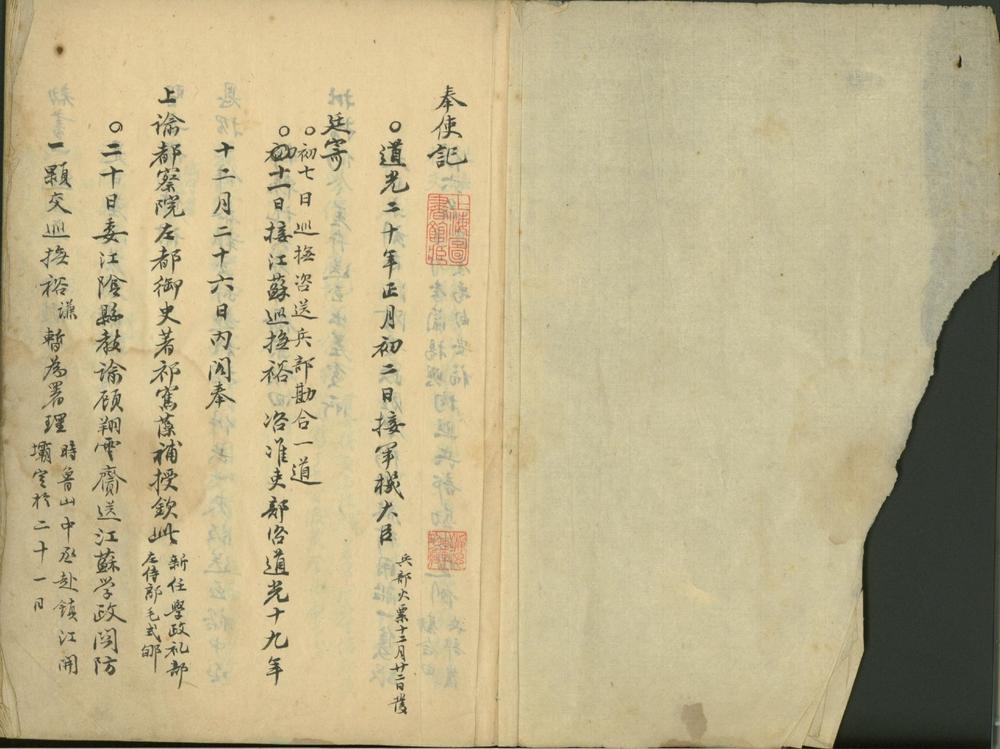 奉使記
上海圖書館藏
○道光二十年正月初二日接軍機大臣 兵部火票十二月廿二日發
廷寄
○初七日巡撫咨送兵部勘合一道
○十一日接江蘇巡撫裕咨准吏部咨道光十九年
十二月二十六日內閣奉
上諭都察院左都御史著祁寯藻補授欽此 新任學政礼部左侍郎毛式郇
○二十日委江陰縣教諭顧翔雲齎送江蘇学政関防
一顆交巡撫裕謙暫為署理 時魯山中丞赴鎮江開壩定於二十一日